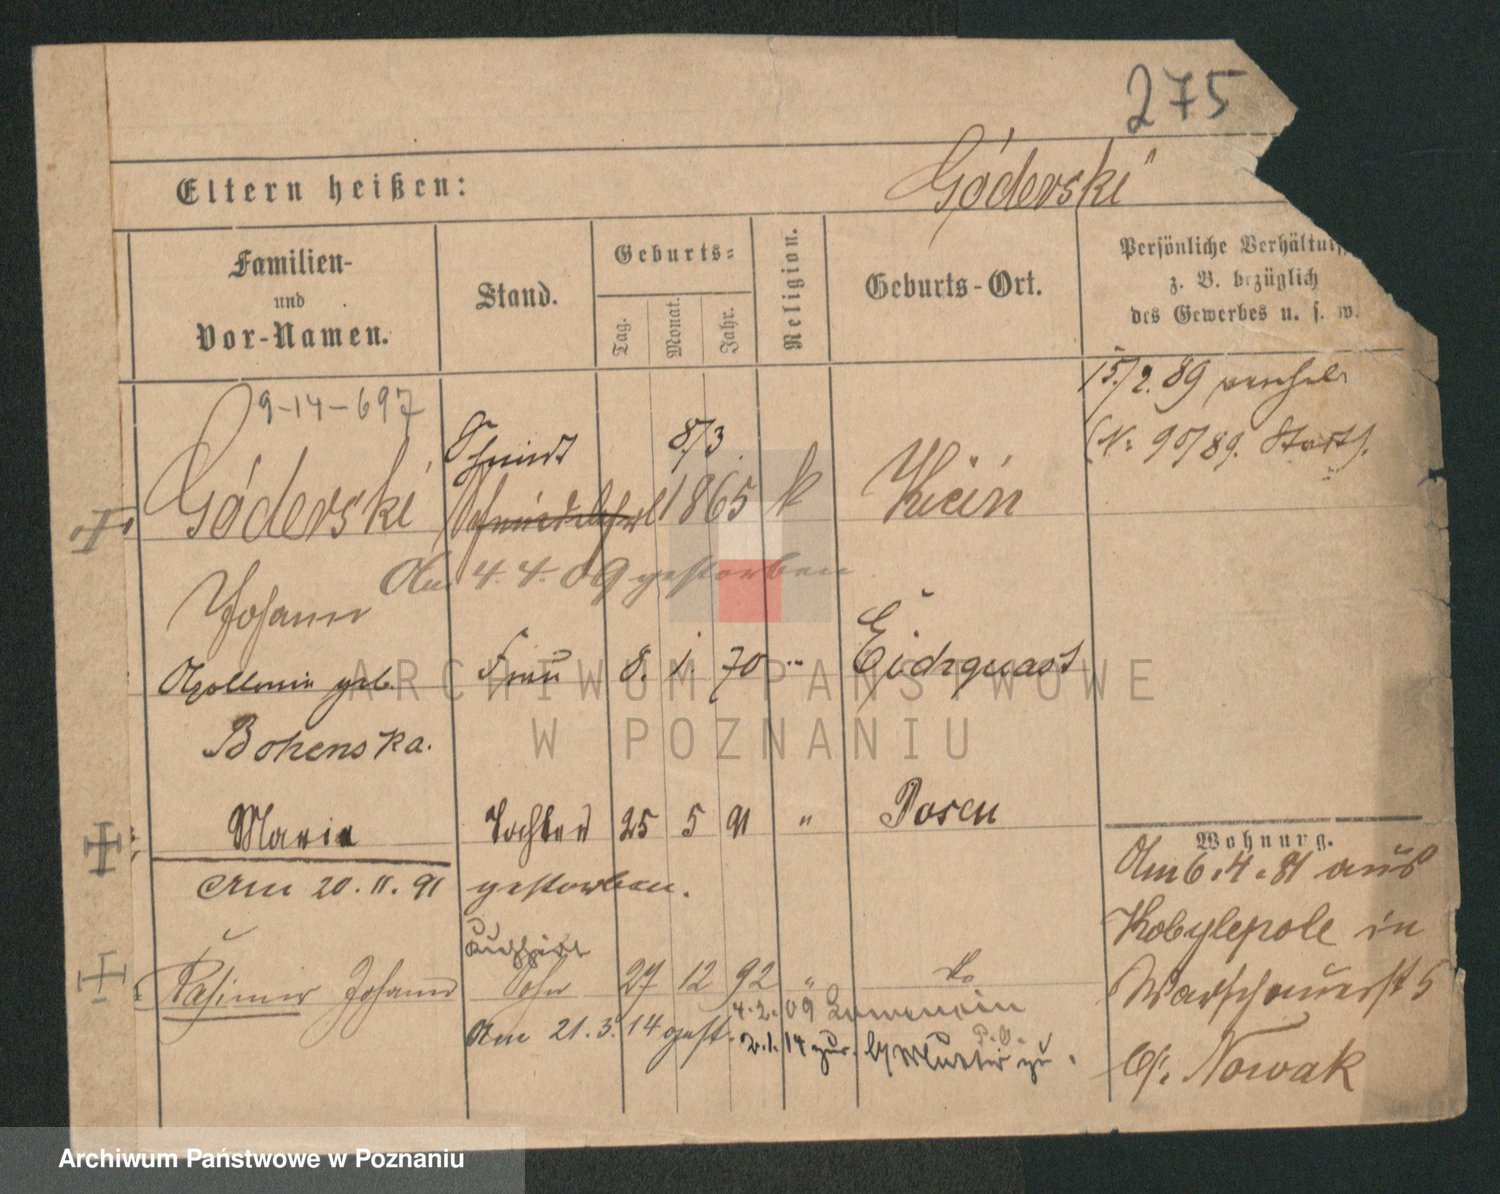 275
Góderski
Eltern heißen:
Familien-
und
Vor-Namen.
Stand.
Geburts-
Tag.
Monat.
Jahr.
Religion.
Geburts-Ort.
Persönliche Verhältniss
z. B. bezüglich
des Gewerbes u. s. w.
15/2. 89
9-14-697
Schmidt 8/3.
(No 90/89.
Góderski 1865 k Kicin
Am 4. 4. 09 gestorben
Johann
Apollonia geb. Frau 8. 1. 70 " Eichquast
Bohenska.
Marie Tochter 25 5 91 " Posen
Wohnung.
Am 20. 11. 91 gestorben.
Am 6. 4. 91 aus
Kobylepole in
Kasimir Johann Sohn 27 12 92 " do
Warschauerst 5
4. 2. 09
Am 21. 3. 14 gest. 2. 1. 14 zur. Mutter zu.
P.O.
b/. Nowak
ARCHIWUM PAŃSTWOWE
W POZNANIU
Archiwum Państwowe w Poznaniu